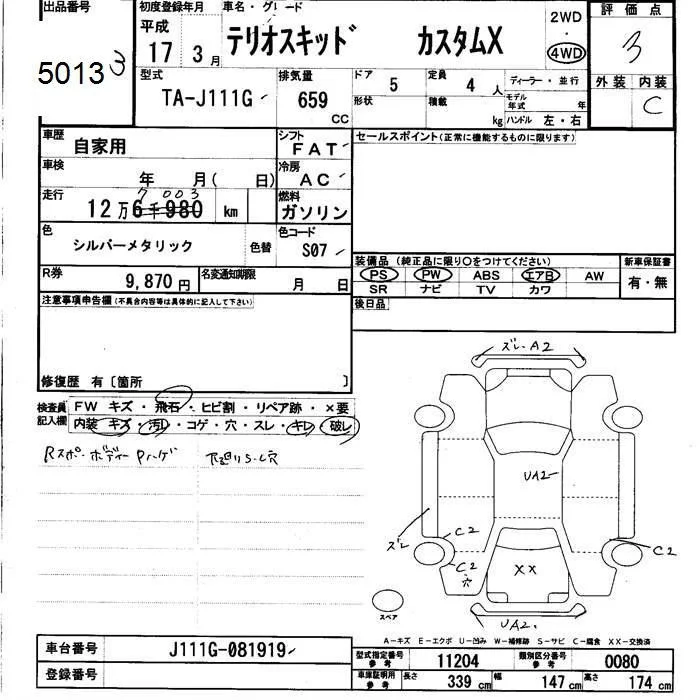 出品番号 初度登録年月 車名・グレード 2WD 評価点
平成 ・
17 3月 テリオスキッド カスタムX 4WD 3
5013 3
型式 排気量 ドア 定員 ディーラー・並行 外装 内装
TA-J111G 659 CC 5 4 人 C
形状 積載 kg モデル年式 年
ハンドル 左・右
車歴 自家用 シフト FAT セールスポイント(正常に機能するものに限ります)
車検 年 月( 日) 冷房 AC
走行 7 003 燃料
12万6千980 km ガソリン
色 シルバーメタリック 色替 色コード S07
装備品(純正品に限り○をつけてください) 新車保証書
R券 9,870円 名変通知期限 月 日 PS PW ABS エアB AW 有・無
SR ナビ TV カワ
注意事項申告欄(不具合内容等は具体的に記入して下さい) 後日品
修復歴 有〔箇所 〕
ズレ.A2
検査員 FW キズ・飛石・ヒビ割・リペア跡・×要
記入欄 内装 キズ・汚れ・コゲ・穴・スレ・キレ・破レ
Rスポ・ボディー Pハゲ 下廻りS-C穴
UA2
ズレ C2 C2
C2
穴
XX
スペア
UA2.
A-キズ E-エクボ U-凹み W-補修跡 S-サビ C-腐食 XX-交換済
車台番号 J111G-081919
型式指定番号 参考 11204 類別区分番号 参考 0080
登録番号
車庫証明用 参考 長さ 339cm 幅 147cm 高さ 174cm